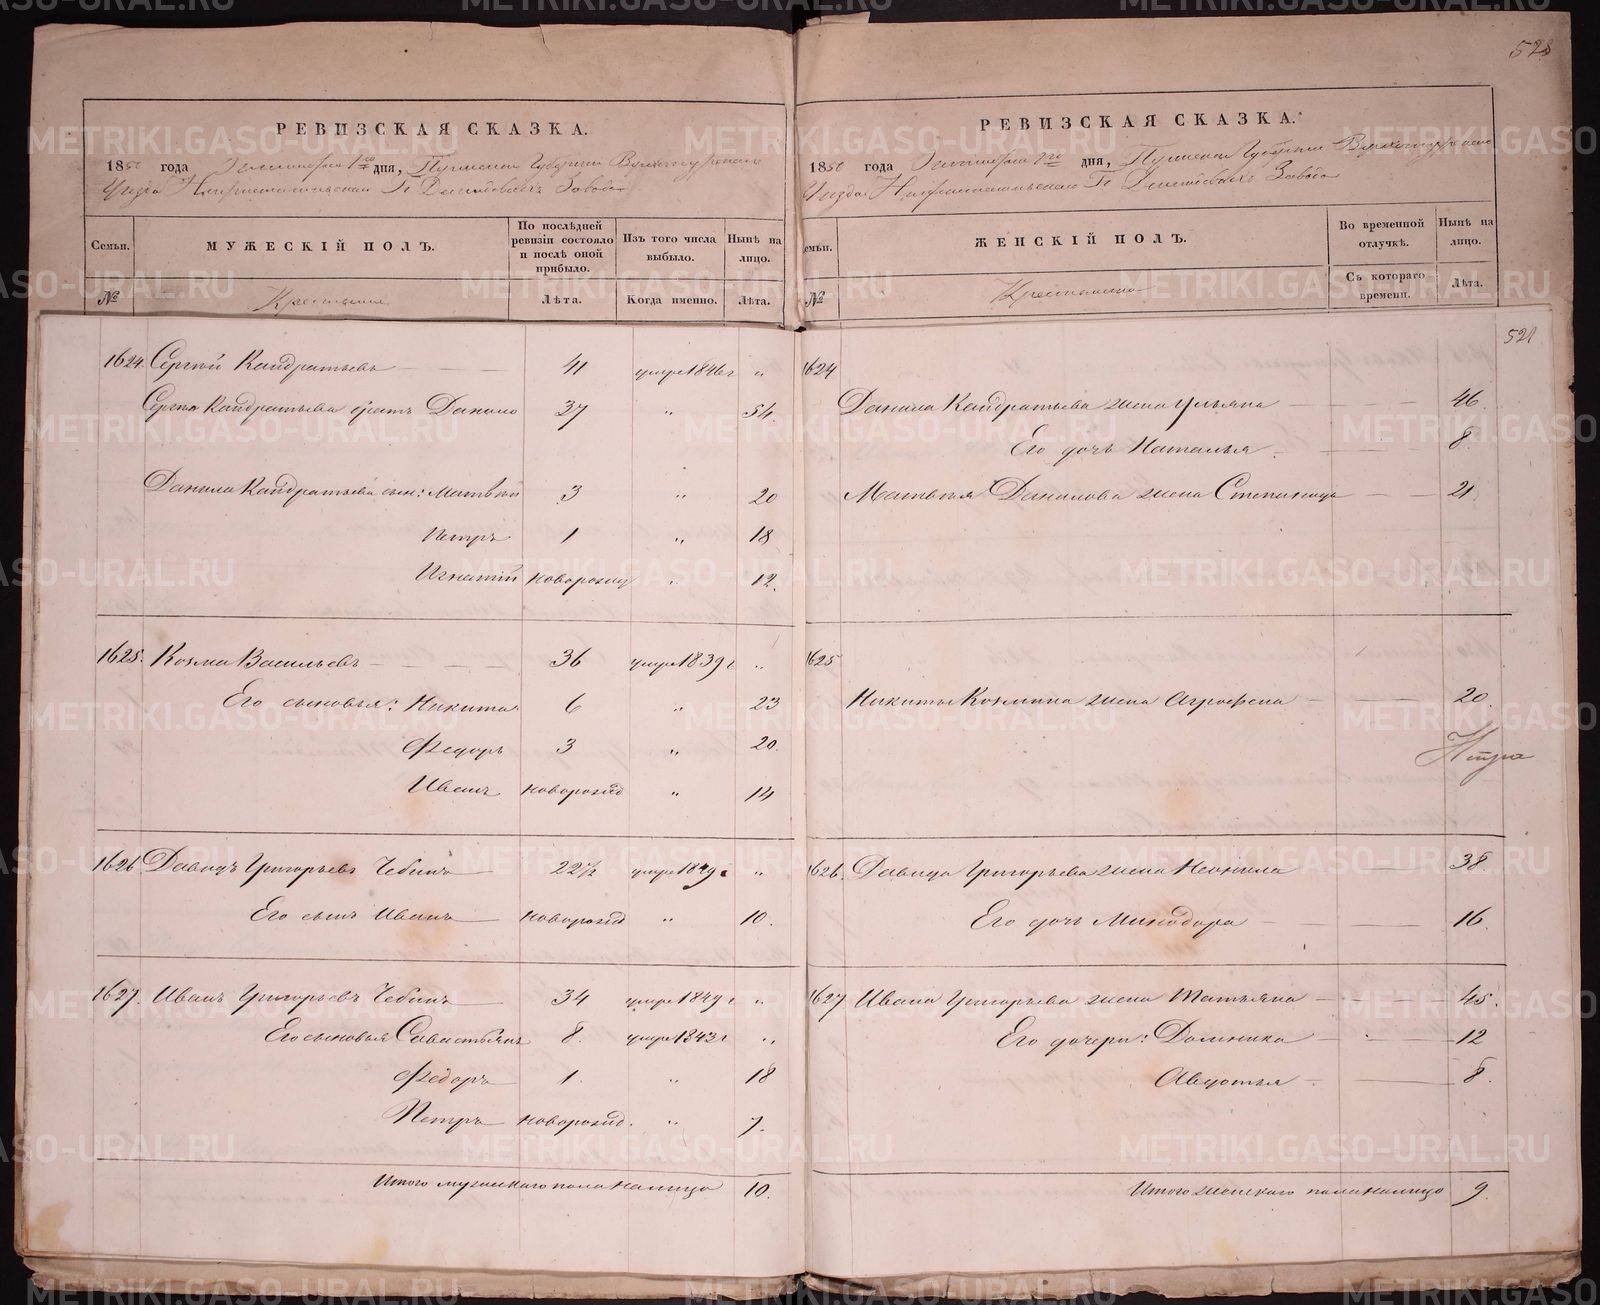 528
РЕВИЗСКАЯ СКАЗКА.
1850 года Сентября 1го дня, Пермской Губернии Верхотурскаго
Уезда Нижнетагильскаго Гг. Демидовыхъ Завода
Семьи.
МУЖЕСКІЙ ПОЛЪ.
По послѣдней ревизіи состояло и послѣ оной прибыло.
Изъ того числа выбыло.
Нынѣ на лицо.
№
Крестьяне
Лѣта.
Когда именно.
Лѣта.
1624. Сергѣй Кандратьевъ 41 умре 1846 г „
Сергѣя Кандратьева братъ Данило 37 „ 54.
Данила Кандратьева сын: Матвѣй 3 „ 20
Петръ 1 „ 18
Игнатій новорожд „ 12.
1625. Козма Васильевъ 36 умре 1839 г „
Его сыновья: Никита 6 „ 23
Федоръ 3 „ 20.
Иванъ новорожд „ 14
1626 Давидъ Григорьевъ Чебинъ 22½ умре 1849 г „
Его сынъ Иванъ новорожд „ 10.
1627. Иванъ Григорьевъ Чебинъ 34 умре 1849 г „
Его сыновья Савастьянъ 8. умре 1843 г „
Федоръ 1. „ 18
Петръ новорожд. „ 7.
Итого мужескаго пола налицо 10.
РЕВИЗСКАЯ СКАЗКА.
1850 года Сентября 1го дня, Пермской Губернии Верхотурскаго
Уезда Нижнетагильскаго Гг. Демидовыхъ Завода
емьи.
ЖЕНСКІЙ ПОЛЪ.
Во временной отлучкѣ.
Нынѣ на лицо.
№
Крестьянки
Съ котораго времени.
Лѣта.
521
1624
Данила Кандратьева жена Ульяна 46.
Его дочь Наталья 8.
Матвѣя Данилова жена Степанида 21.
1625
Никиты Козмина жена Агрофена 20.
1626. Давида Григорьева жена Неонила 38
Его дочь Минодора 16.
1627 Ивана Григорьева жена Татьяна 45.
Его дочери: Домника 12
Авдотья 8.
Итого женскаго пола налицо 9.
METRIKI.GASO-URAL.RU